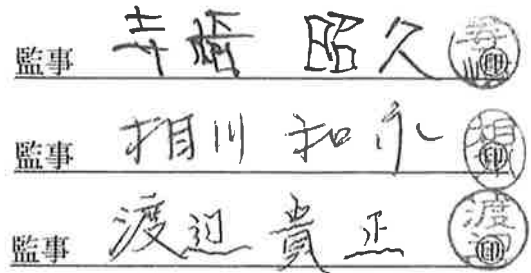 監事 寺崎 昭久 印
監事 相川 和永 印
監事 渡辺 貴 正 渡辺 印